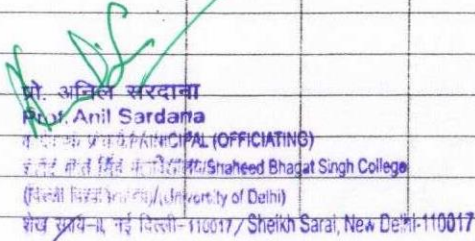 प्रो. अनिल सरदाना
Prof. Anil Sardana
PRINCIPAL (OFFICIATING)
Shaheed Bhagat Singh College
University of Delhi)
शेख सराय-II, नई दिल्ली-110017 / Sheikh Sarai, New Delhi-110017